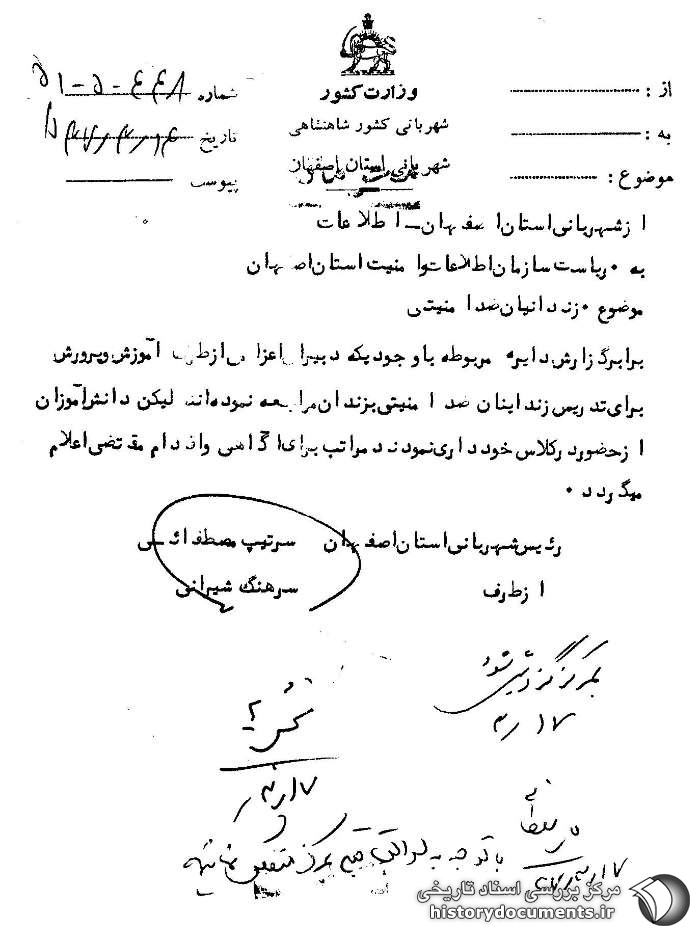 وزارت کشور
شهربانی کشور شاهنشاهی
شهربانی استان اصفهان
از :
به :
موضوع :
شماره ۵۱-۵-۴۴۸
تاریخ
پیوست
از شهربانی استان اصفهان ـ اطلاعات
به ۰ ریاست سازمان اطلاعات و امنیت استان اصفهان
موضوع ۰ زندانیان ضد امنیتی
برابر گزارش دایره مربوطه با وجودیکه دبیران اعزامی از طرف آموزش و پرورش
برای تدریس زنداینان ضد امنیتی بزندان مراجعه نموده‌اند لیکن دانش‌آموزان
از حضور در کلاس خودداری نمودند مراتب برای آگاهی و اقدام مقتضی اعلام
میگردد ۰
رئیس شهربانی استان اصفهان سرتیپ مصطفائی
از طرف سرهنگ شیرانی
بمرکز گزارش شود
۱۷ر۳
۱۷ر۳
با توجه به مرکز منعکس نمائید
مرکز بررسی اسناد تاریخی
historydocuments.ir